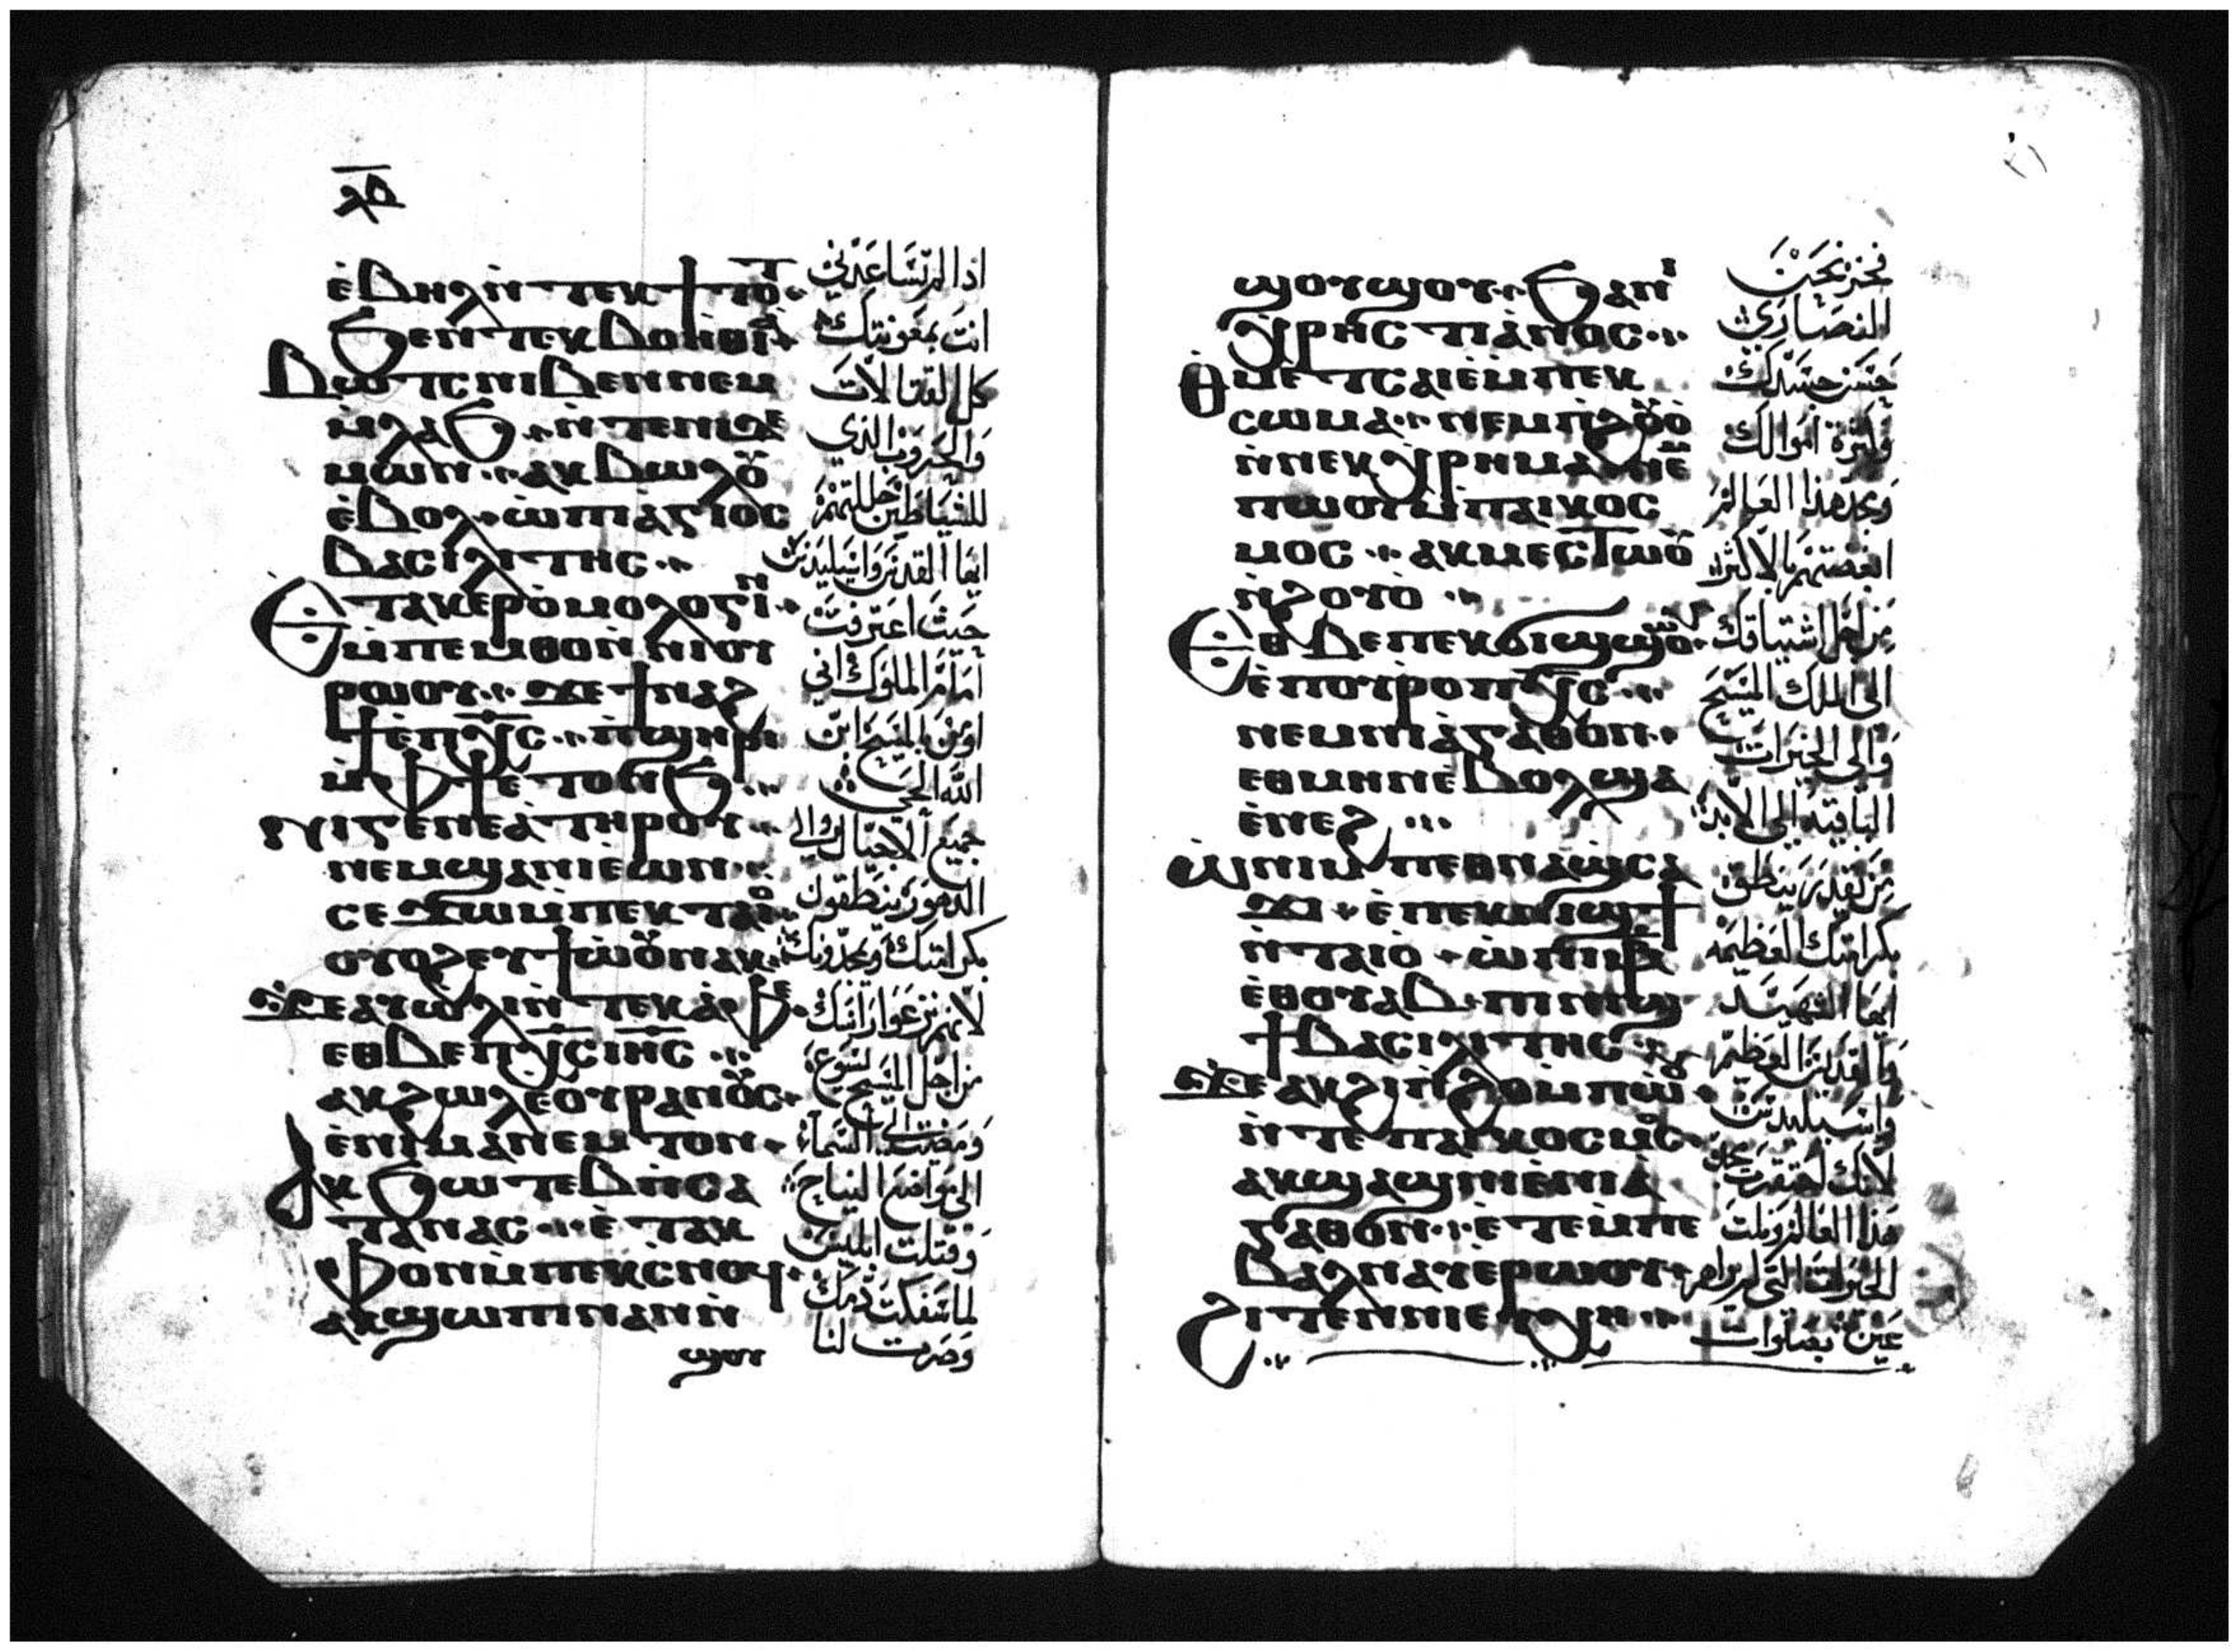 ⲉ̀ⲃⲏⲗ ⲛ̀ⲧⲉⲕϯⲧⲟ
ϧⲉⲛ ⲧⲉⲕⲃⲟⲏⲑⲓⲁ
ⲃⲱⲧⲥ ⲛⲓⲃⲉⲛ ⲛⲉⲙ
ⲙ̀ⲗⲁϧ ⲛ̀ⲧⲉ ⲛⲓⲇⲉ
ⲙⲱⲛ ⲁⲕⲃⲱⲗⲟⲩ
ⲉ̀ⲃⲟⲗ ⲱ̀ ⲡⲓⲁ̀ⲅⲓⲟⲥ
ⲃⲁⲥⲓⲗⲓⲧⲏⲥ
ⲉⲧⲁⲕⲉⲣⲟ̀ⲙⲟⲗⲟⲅⲓⲛ
ⲙ̀ⲡⲉⲙⲑⲟ ⲛ̀ⲛⲓⲟⲩ
ⲣⲱⲟⲩ ϫⲉ ϯⲛⲁϩ
ϯ ⲉ̀ⲡⲭ̅ⲥ̅ ⲡ̀ϣⲏⲣⲓ
ⲙ̀ⲫϯ ⲉⲧⲟⲛϧ
ⲅⲉⲛⲉⲁ̀ ⲧⲏⲣⲟⲩ
ⲛⲉⲙ ϣⲁ ⲛⲓⲉ̀ⲱⲛ
ⲥⲉϫⲱ ⲙ̀ⲡⲉⲕⲧⲁⲓⲟ
ⲟⲩⲟϩ ⲉⲩϯⲱ̀ⲟⲩ ⲛⲁⲕ
ϫⲉ ⲁⲩⲱ̀ⲗⲓ ⲛ̀ⲧⲉⲕⲁ̀ⲫⲉ
ⲉⲑⲃⲉ ⲡⲭ̅ⲥ̅ ⲓⲏ̅ⲥ̅
ⲁⲕϩⲱⲗ ⲉⲟⲩⲣⲁⲛⲟⲥ
ⲉ̀ⲛⲓⲙⲁⲛ̀ⲉⲙⲧⲟⲛ
ⲁⲕϧⲱⲧⲉⲃ ⲛ̀ⲥⲁ
ⲧⲁⲛⲁⲥ ⲉ̀ⲧⲁⲕ
ⲫⲟⲛ ⲙ̀ⲡⲉⲕⲥ̀ⲛⲟϥ
ⲁⲕϣⲱⲡⲓ ⲛⲁⲛ ⲛ̀
ϣⲟⲩ
اذا لم تساعدني
انت بمعونتك
كل القتالات
والحروب الذي
للشياطين
ايها القديس واسيليدس
حيث اعترفت
امام الملوك اني
اومن بالمسيح ابن
الله الحي
جميع الاجيال والى
الدهور ينطقون
بكرامتك ويمجدونك
لانهم نزعوا راسك
من اجل المسيح يسوع
ومضيت الى السماء
الى مواضع النياح
وقتلت ابليس
لما سفكت دمك
وصرت لنا
ϣⲟⲩϣⲟⲩ ϧⲁ ⲛⲓ
ⲭⲣⲏⲥⲧⲓⲁⲛⲟⲥ
ⲑⲙⲉⲧⲥⲁⲓⲉ̀ ⲙ̀ⲡⲉⲕ
ⲥⲱⲙⲁ ⲛⲉⲙ ⲡ̀ϩⲟⲩⲟ̀
ⲛ̀ⲛⲉⲕⲭⲣⲏⲙⲁ ⲛⲉⲙ
ⲡⲱⲟⲩ ⲙ̀ⲡⲁⲓⲕⲟⲥ
ⲙⲟⲥ ⲁⲕⲙⲉⲥⲧⲱⲟⲩ
ⲛ̀ϩⲟⲩⲟ̀
ⲉⲑⲃⲉ ⲡⲉⲕϭⲓϣϣⲱⲟⲩ
ⲉ̀ⲡⲟⲩⲣⲟ ⲡⲭ̅ⲥ̅
ⲛⲉⲙ ⲛⲓⲁ̀ⲅⲁⲑⲟⲛ
ⲉⲑⲙⲏⲛ ⲉ̀ⲃⲟⲗ ϣⲁ
ⲉ̀ⲛⲉϩ
ⲱ̀ ⲛⲓⲙ ⲡⲉⲑⲛⲁϣⲥⲁ
ϫⲓ ⲉ̀ⲡⲉⲕⲛⲓϣϯ
ⲛ̀ⲧⲁⲓⲟ̀ ⲱ̀
ⲉ̀ⲑⲟⲩⲁⲃ ⲡⲓⲛⲓϣ
ϯ ⲃⲁⲥⲓⲗⲓⲧⲏⲥ
ϫⲉ ⲁⲕϩⲓⲡ̀ϩⲟ ⲙ̀ⲡⲱ̀ⲟⲩ
ⲛ̀ⲧⲉ ⲡⲁⲓⲕⲟⲥⲙⲟⲥ
ⲁⲕϣⲁϣⲛⲓ ⲉ̀ⲛⲓⲁ̀
ⲅⲁⲑⲟⲛ ⲉ̀ⲧⲉ ⲙ̀ⲡⲉ
ⲃⲁⲗ ⲛⲁⲩ ⲉ̀ⲣⲱⲟⲩ
ϩⲓⲧⲉⲛ ⲛⲓⲉⲩⲭⲏ
فخر نحن
النصارى
حسن جسدك
وكثرة اموالك
ومجد هذا العالم
ابغضتهم بالاكثر
من اجل اشتياقك
الى الملك المسيح
والى الخيرات
الباقية الى الابد
من يقدر ينطق
بكرامتك العظيمة
ايها الشهيد
والقديس العظيم
واسيليدس
لانك احتقرت مجد
هذا العالم ونلت
الخيرات التي لم تراهم
عين بصلوات